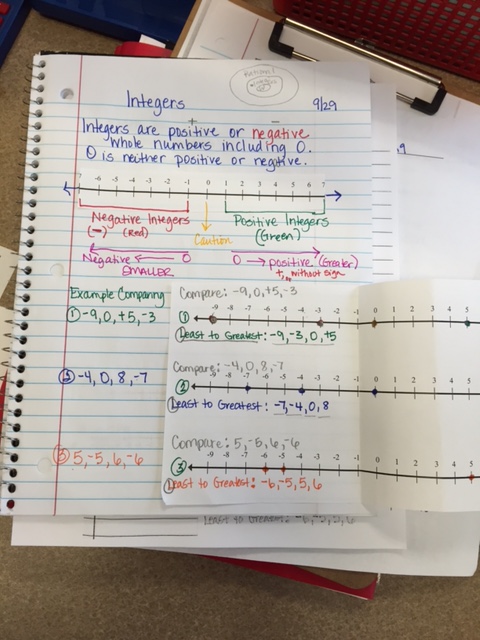 Rational
Integers 9/29
+ -
Integers are positive or negative
whole numbers including 0.
0 is neither positive or negitive.
-7 -6 -5 -4 -3 -2 -1 0 1 2 3 4 5 6 7
Negative Integers Positive Integers
(-) (Red) (Green)
Caution
Negative ← 0 0 → positive (Greater)
SMALLER + or without sign
Example Comparing
① -9, 0, +5, -3
② -4, 0, 8, -7
③ 5, -5, 6, -6
Compare: -9, 0, +5, -3
① -9 -8 -7 -6 -5 -4 -3 -2 -1 0 1 2 3 4 5
Least to Greatest: -9, -3, 0, +5
Compare: -4, 0, 8, -7
② -9 -8 -7 -6 -5 -4 -3 -2 -1 0 1 2 3 4 5
Least to Greatest: -7, -4, 0, 8
Compare: 5, -5, 6, -6
③ -9 -8 -7 -6 -5 -4 -3 -2 -1 0 1 2 3 4 5
Least to Greatest: -6, -5, 5, 6
Least to Greatest: -6, -5, 5, 6